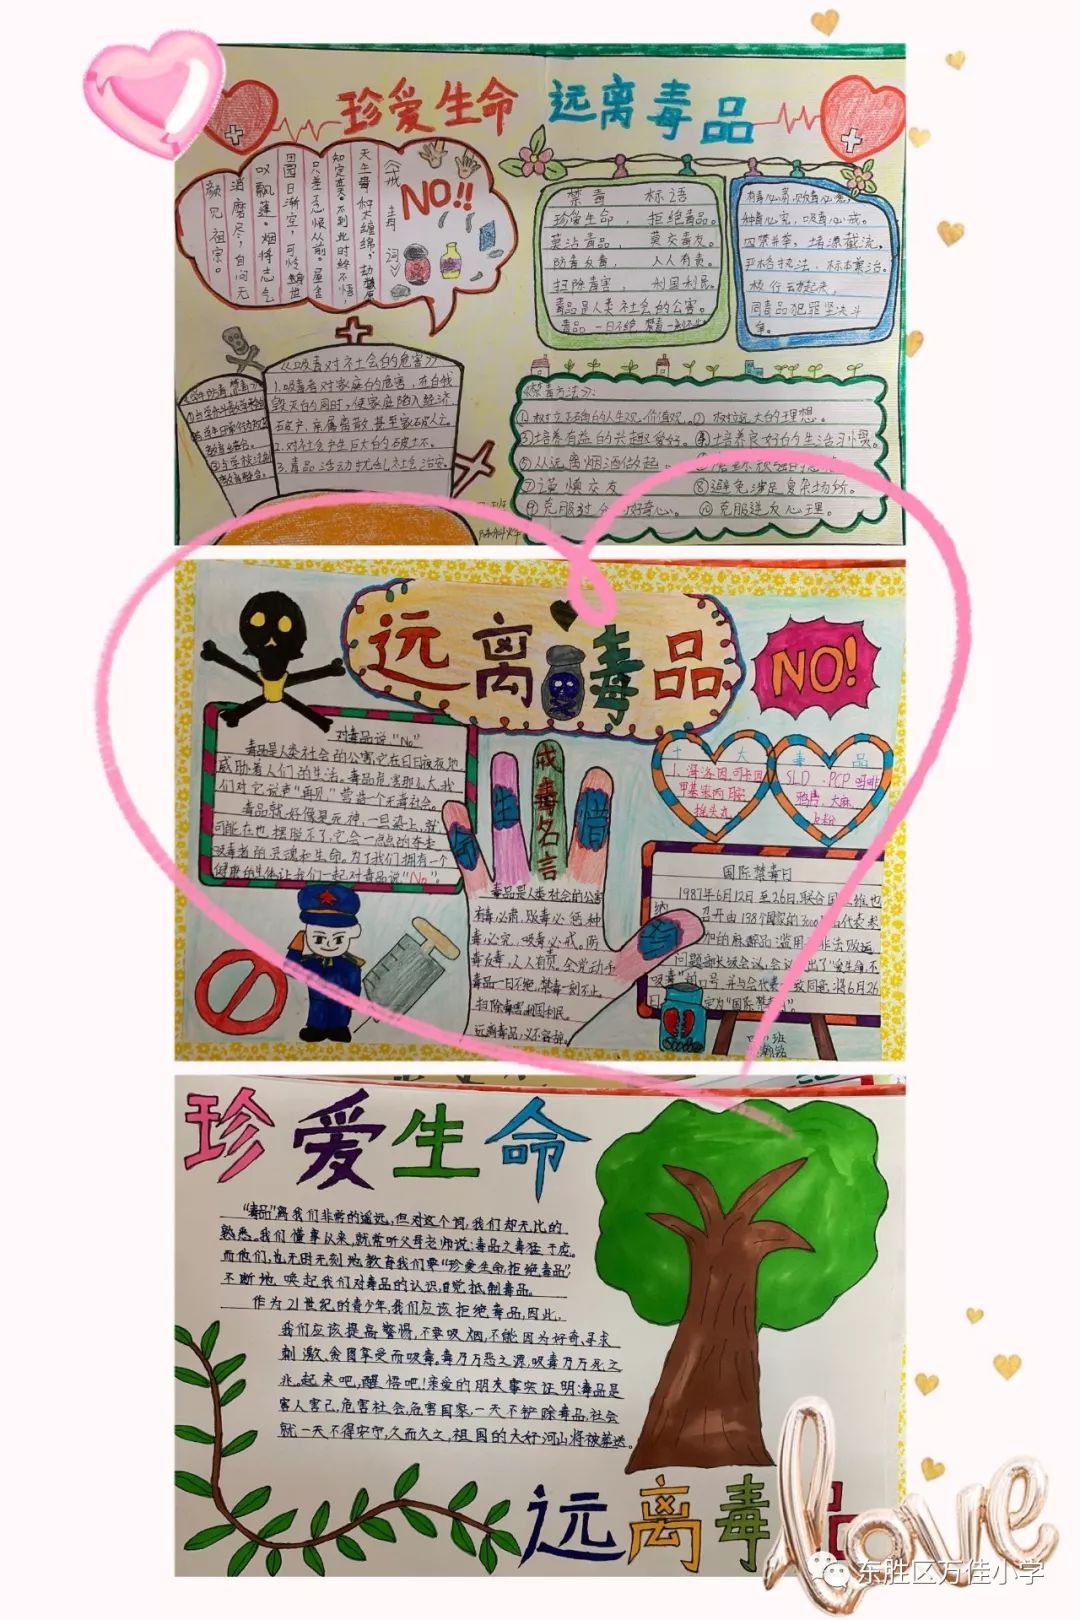 珍爱生命 远离毒品
《戒毒词》
天生毒种太缠绵，
知定莫不到此时终不悟，
只差忐恨从前。屋舍
田园日渐空，可怜
叹飘蓬。烟将志气
消磨尽，自问无
颜见祖宗。
NO!!
禁毒标语
珍爱生命，拒绝毒品。
莫沾毒品，莫交毒友。
防毒反毒，人人有责。
扫除毒害，利国利民。
毒品是人类社会的公害。
毒品一日不绝，禁毒一刻不止
有毒必肃，贩毒必惩，
种毒必究，吸毒必戒。
四禁并举，堵源截流。
严格执法，标本兼治。
同毒品犯罪坚决斗
争。
《吸毒对社会的危害》
1.吸毒者对家庭的危害，在自我
毁灭的同时，使家庭陷入经济
破产，亲属离散，甚至家破人亡。
2.对社会产生巨大的破坏。
3.毒品活动扰乱社会治安。
《禁毒方法》：
①树立正确的人生观、价值观。②树立远大的理想。
③培养有益的兴趣爱好。④培养良好的生活习惯。
⑤从远离烟酒做起。
⑦谨慎交友 ⑧避免涉足复杂场所。
⑨克服过分的好奇心。⑩克服逆反心理。
远离毒品
NO!
对毒品说"No"
毒品是人类社会的公害，它在日日夜夜地
威胁着人们的生活。毒品危害那么大，我
们对它说声"再见"，营造个无毒社会。
毒品就好像是死神，一旦染上，就
可能在也摆脱不了，它会一点点的夺走
吸毒者的灵魂和生命。为了我们拥有一个
健康的生体，让我们一起对毒品说"No"。
命
生
戒毒名言
惜
珍
毒品是人类社会的公害
有毒必肃，贩毒必惩，种
毒必究，吸毒必戒。防
毒反毒，人人有责。全党动手
毒品一日不绝，禁毒一刻不止。
扫除毒害利国利民。
远离毒品，义不容辞。
十大毒品
1、海洛因可卡因
甲基苯丙胺
摇头丸
SLD、PCP吗啡
鸦片、大麻、
国际禁毒日
1987年6月12日至26日，联合国
召开由138个国家的3000名代表参
加的麻醉品滥用非法贩运
问题部长级会议，会议提出了"爱生命，不
吸毒"的口号，并与会代表一致同意将6月26
定为"国际禁毒日"。
珍爱生命
"毒品"离我们非常的遥远，但对这个词，我们却无比的
熟悉。我们懂事以来，就常听父母老师说：毒品之毒猛于虎。
而他们，也无时无刻地教育我们要"珍爱生命拒绝毒品"，
不断地唤起我们对毒品的认识，自觉抵制毒品。
作为21世纪的青少年，我们应该拒绝毒品，因此，
我们应该提高警惕，不要吸烟，不能因为好奇、寻求
刺激、贪图享受而吸毒。毒乃万恶之源，吸毒乃万死之
兆。起来吧，醒悟吧！亲爱的朋友事实证明：毒品是
害人害己，危害社会，危害国家，一天不铲除毒品，社会
就一天不得安宁，久而久之，祖国的大好河山将被葬送。
远离毒品
love
东胜区万佳小学